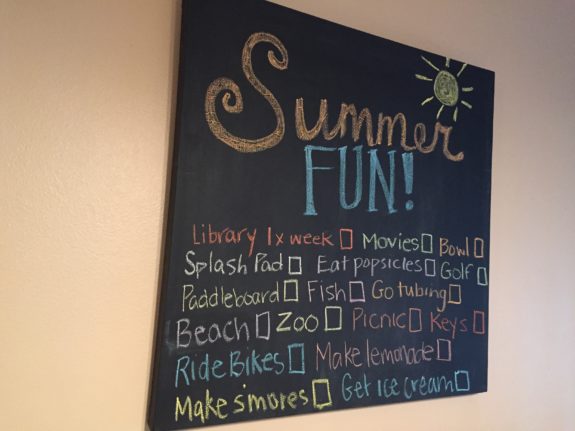 Summer
FUN!
Library 1x week ☐ Movies ☐ Bowl ☐
Splash Pad ☐ Eat popsicles ☐ Golf ☐
Paddleboard ☐ Fish ☐ Go tubing ☐
Beach ☐ Zoo ☐ Picnic ☐ Keys ☐
Ride Bikes ☐ Make lemonade ☐
Make s'mores ☐ Get ice cream ☐